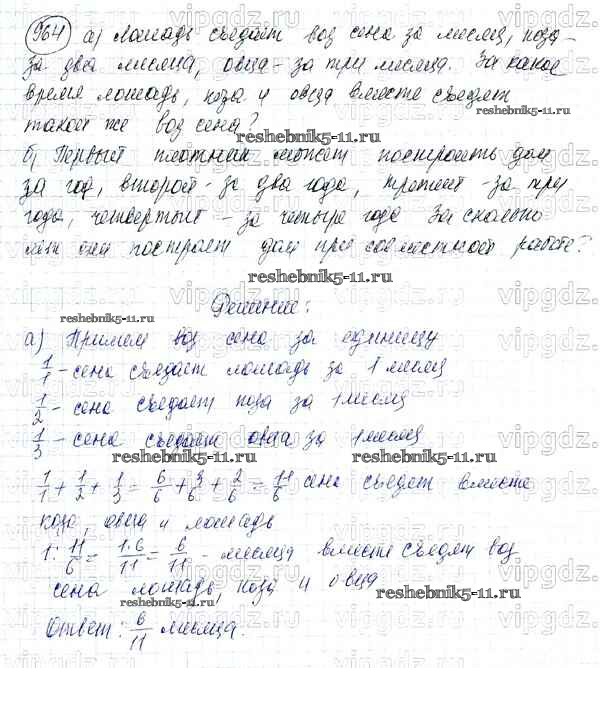 964 а) Лошадь съедает воз сена за месяц, коза -
за два месяца, овца - за три месяца. За какое
время лошадь, коза и овца вместе съедят
такой же воз сена?
reshebnik5-11.ru
б) Первый плотник может построить дом
за год, второй - за два года, третий - за три
года, четвертый - за четыре года За сколько
лет они построят дом при совместной работе?
reshebnik5-11.ru
Решение:
reshebnik5-11.ru
а) Примем воз сена за единицу
1/1 - сена съедает лошадь за 1 месяц
1/2 - сена съедает коза за 1 месяц
1/3 - сена съедает овца за 1 месяц
reshebnik5-11.ru reshebnik5-11.ru
1/1 + 1/2 + 1/3 = 6/6 + 3/6 + 2/6 = 11/6 сена съедят вместе
коза, овца и лошадь
1 : 11/6 = 1·6/11 = 6/11 - месяца вместе съедят воз
сена лошадь, коза и овца
reshebnik5-11.ru reshebnik5-11.ru
Ответ: 6/11 месяца.